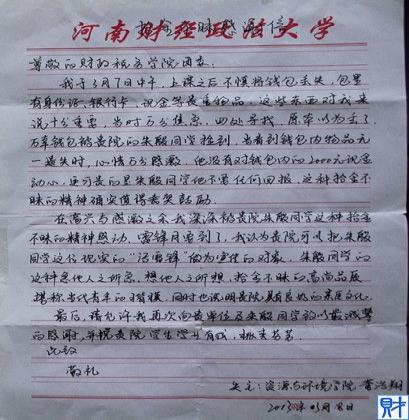 河南财经政法大学
拾金不昧感谢信
尊敬的财政税务学院团委:
我于3月7日中午,上课之后不慎将钱包丢失,包里
有身份证、银行卡、现金等贵重物品。这些东西对我来
说十分重要,当时万分焦急,四处寻找,原本以为丢了,
万幸钱包被贵院的朱殷同学捡到,当看到钱包内物品无
一遗失时,心情万分感激,他没有对钱包内的2000元现金
动心,更可贵的是朱殷同学他不要任何回报,这种拾金不
昧的精神确实值得表奖鼓励
在高兴与感激之余我深深被贵院朱殷同学这种拾金
不昧的精神感动,雷锋月要到了,我认为贵院可以把朱殷
同学这位现实的“活雷锋”做为宣传的对象,朱殷同学的
这种急人之所急,想他人之所想,拾金不昧的高尚品质
堪称当代青年的楷模,同时也说明贵院具有良好的素质文化。
最后,请允许我再次向贵单位及朱殷同学致以最诚挚
的感谢,并祝贵院学生学业有成,桃李芬芳。
此致
敬礼
失主:资源与环境学院
2013年03月 日
財